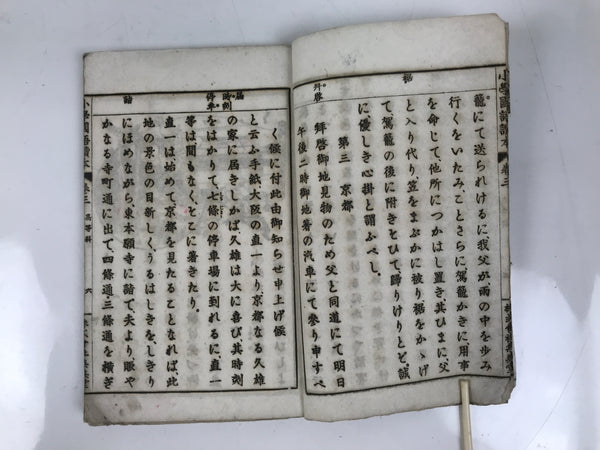 小學國語讀本 卷三
裾
籠にて送られけるに我父が雨の中を歩み
行くをいたみことさらに駕籠かきに用事
を命じて、他所につかはし置き、其ひまに父
と入り代り、笠をまぶかに被り、裾をかゝげ
て、駕籠の後に附きそひて、歸りけりとぞ、誠
に優しき心掛と謂ふべし。
第三 京都
拜啓
拜啓御地見物のため父と同道にて明日
午後二時御地著の汽車にて參り申すべ
く候に付此由御知らせ申上げ候
屆 時刻 停車
と云ふ手紙大阪の直一より京都なる久雄
の家に屆きしかば久雄は大に喜び其時刻
をはかりて、七條の停車場に到れるに直一
等は間もなく、こゝに著きたり。
直一は始めて京都を見たることなれば、此
地の景色の目新しく、うるはしきを、しきり
詣
にほめながら東本願寺に詣で、夫より、賑や
かなる寺町通に出て、四條通、三條通を横ぎ
小學國語讀本 卷三 高等科 六